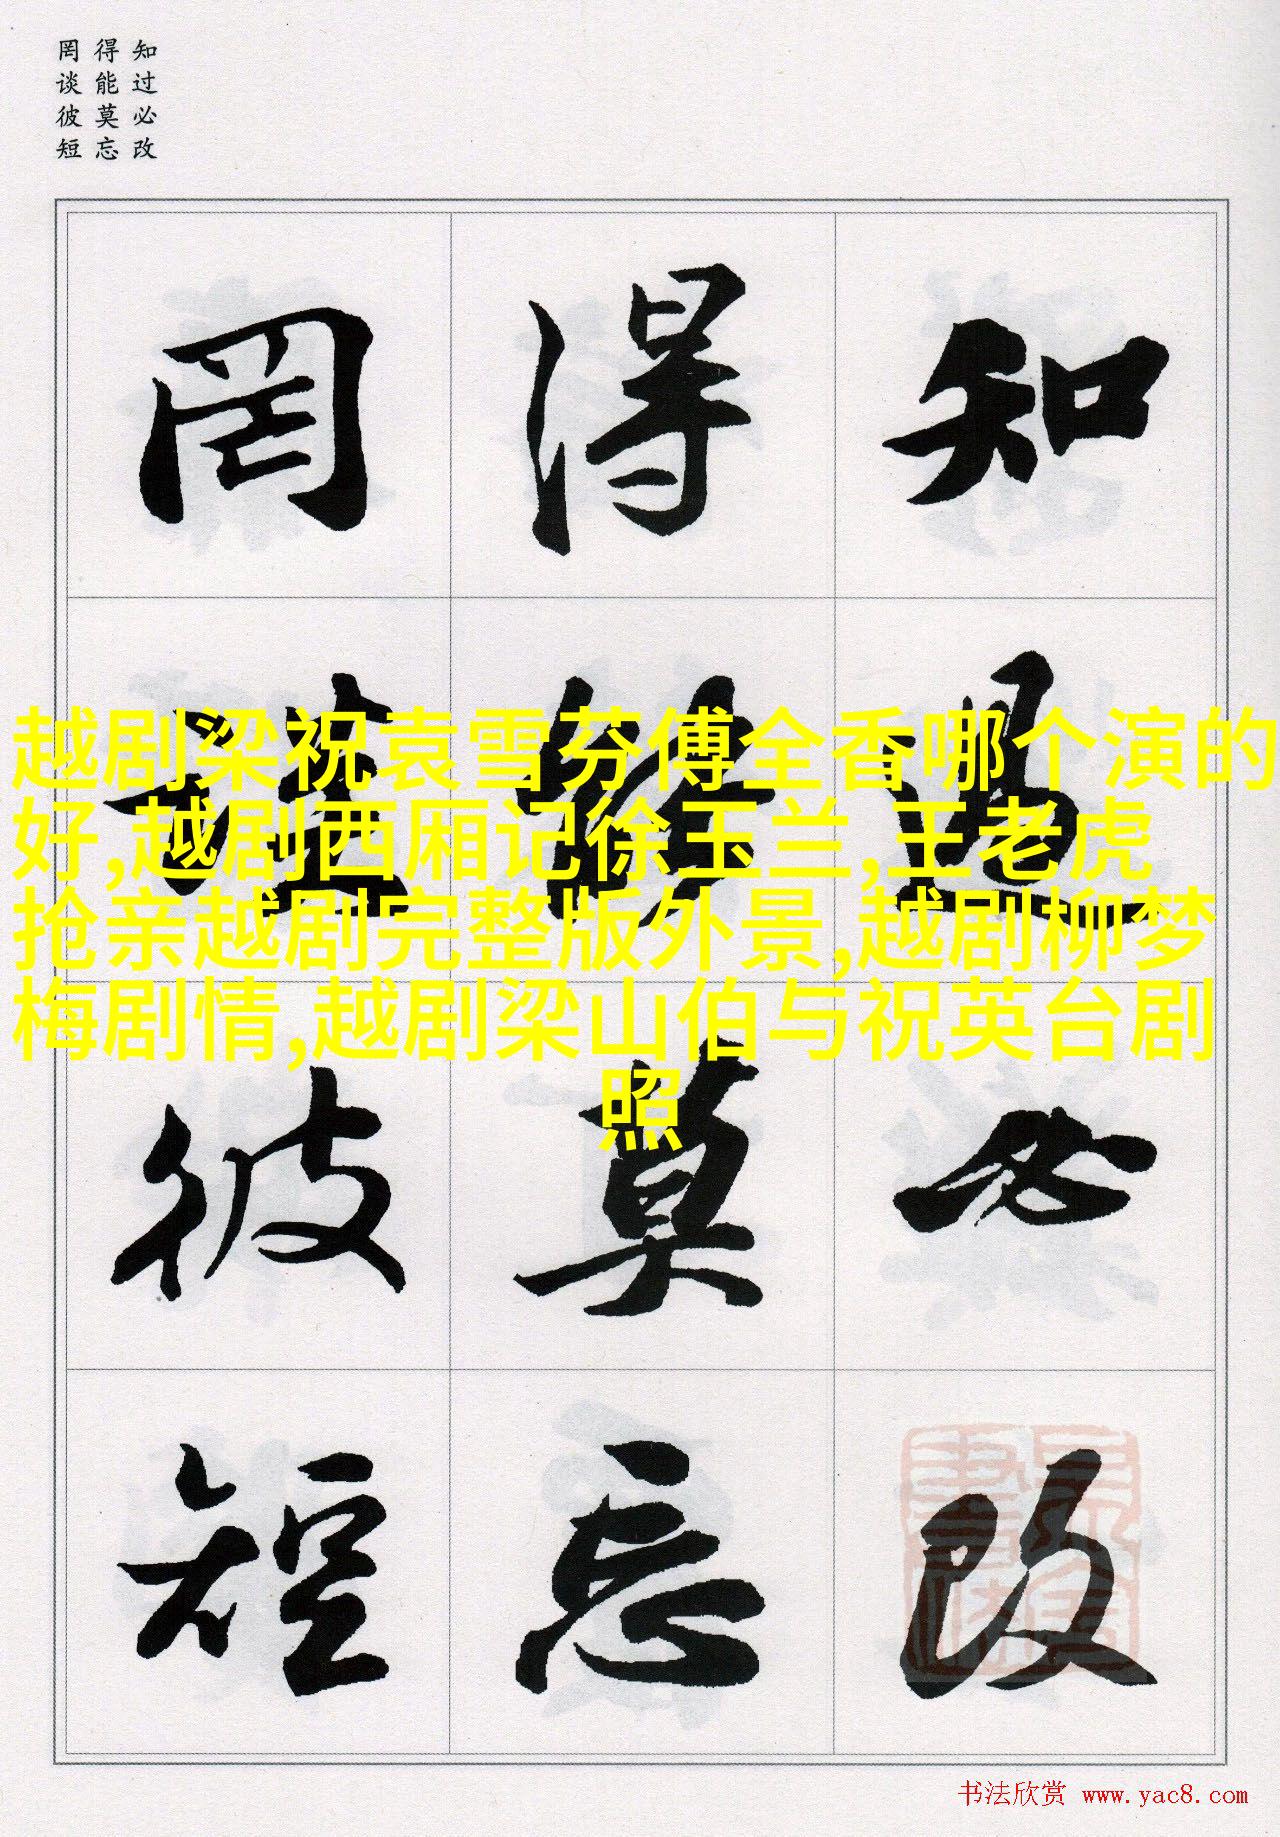 知过必改
得能莫忘
罔谈彼短
知过必改
得能莫忘
罔谈彼短
越剧梁祝袁雪芬傅全香哪个演的
好,越剧西厢记徐玉兰,王老虎
抢亲越剧完整版外景,越剧柳梦
梅剧情,越剧梁山伯与祝英台剧
照
书法欣赏 www.yac8.com